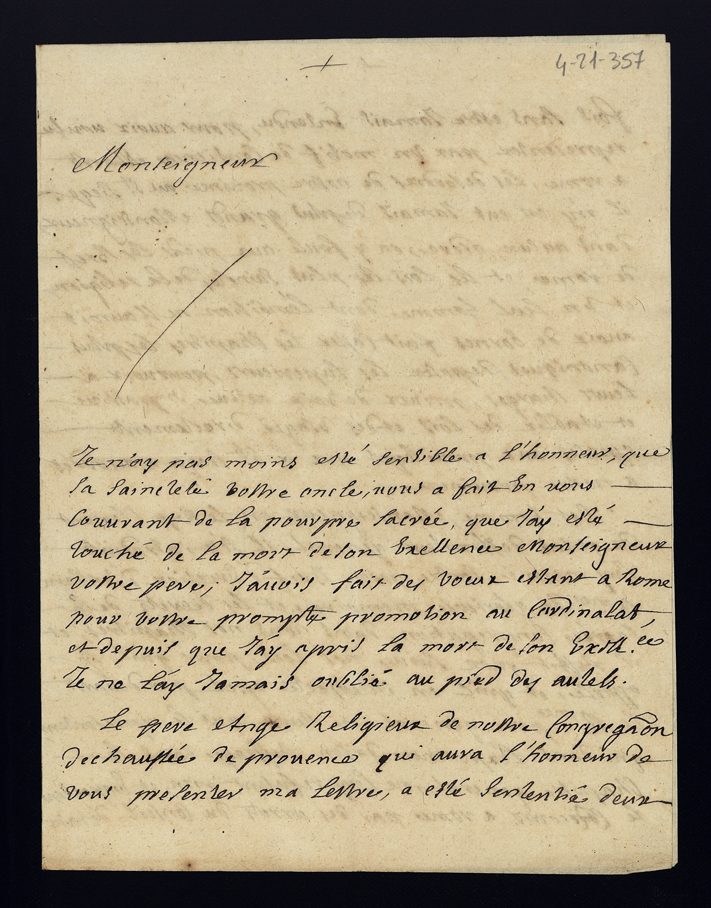 4-21-357
Monseigneur
Je n'ay pas moins esté sensible a l'honneur, que
sa saincteté vostre oncle, nous a fait En vous
Couvrant de la pourpre sacrée, que J'ay esté
touché de la mort de son Exellence Monseigneur
vostre pere; J'auois fait des voeux estant a Rome
pour vostre prompte promotion au Cardinalat
et depuis que J'ay apris la mort de son Exell.ce
Je ne l'ay Jamais oublié au pied des autels.
Le pere Ange Religieux de nostre Congregãon
dechaussée de provence qui aura l'honneur de
vous presenter ma lettre, a esté sententié deux